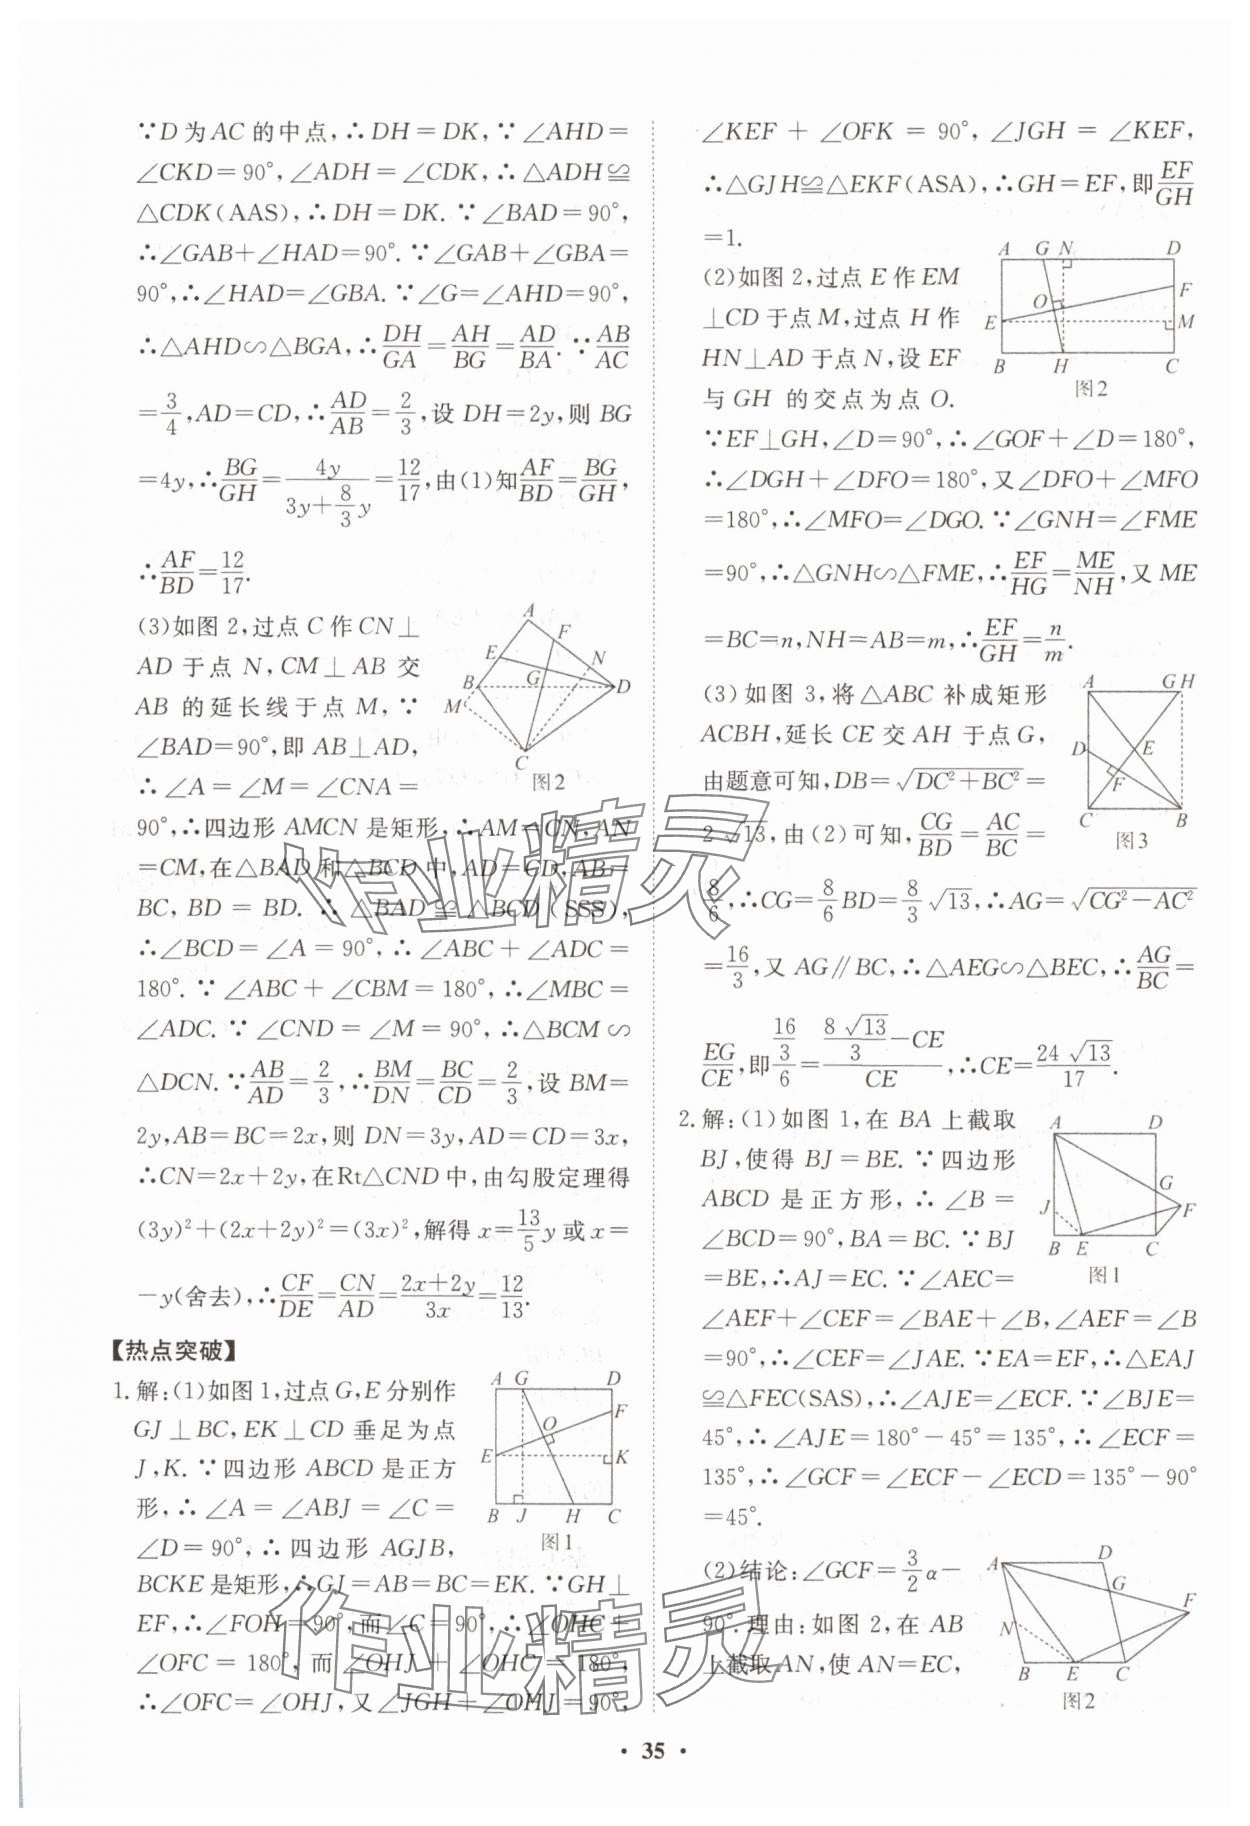 ∵D为AC的中点,∴DH=DK,∵∠AHD=
∠CKD=90°,∠ADH=∠CDK,∴△ADH≌
△CDK(AAS),∴DH=DK.∵∠BAD=90°,
∴∠GAB+∠HAD=90°.∵∠GAB+∠GBA=
90°,∴∠HAD=∠GBA.∵∠G=∠AHD=90°,
∴△AHD∽△BGA,∴DH/GA=AH/BG=AD/BA.∵AB/AC
=3/4,AD=CD,∴AD/AB=2/3,设DH=2y,则BG
=4y,∴BG/GH=4y/(3y+8/3y)=12/17,由(1)知AF/BD=BG/GH,
∴AF/BD=12/17.
(3)如图2,过点C作CN⊥
AD于点N,CM⊥AB交
AB的延长线于点M,∵
∠BAD=90°,即AB⊥AD,
∴∠A=∠M=∠CNA=
A
F
E
N
B
G
D
M
C
图2
90°,∴四边形AMCN是矩形,∴AM=CN,AN
=CM,在△BAD和△BCD中,AD=CD,AB=
BC,BD=BD.∴△BAD≌△BCD(SSS),
∴∠BCD=∠A=90°,∴∠ABC+∠ADC=
180°.∵∠ABC+∠CBM=180°,∴∠MBC=
∠ADC.∵∠CND=∠M=90°,∴△BCM∽
△DCN.∵AB/AD=2/3,∴BM/DN=BC/CD=2/3,设BM=
2y,AB=BC=2x,则DN=3y,AD=CD=3x,
∴CN=2x+2y,在Rt△CND中,由勾股定理得
(3y)²+(2x+2y)²=(3x)²,解得x=13/5y或x=
-y(舍去),∴CF/DE=CN/AD=(2x+2y)/3x=12/13.
【热点突破】
1.解:(1)如图1,过点G,E分别作
GJ⊥BC,EK⊥CD垂足为点
J,K.∵四边形ABCD是正方
形,∴∠A=∠ABJ=∠C=
∠D=90°,∴四边形AGJB,
A G D
F
O
E K
B J H C
图1
BCKE是矩形,∴GJ=AB=BC=EK.∵GH⊥
EF,∴∠FOH=90°,而∠C=90°,∴∠OHC+
∠OFC=180°,而∠OHJ+∠OHC=180°,
∴∠OFC=∠OHJ,又∠JGH+∠OHJ=90°,
∠KEF+∠OFK=90°,∠JGH=∠KEF,
∴△GJH≌△EKF(ASA),∴GH=EF,即EF/GH
=1.
(2)如图2,过点E作EM
⊥CD于点M,过点H作
HN⊥AD于点N,设EF
与GH的交点为点O.
A G N D
F
O
E M
B H C
图2
∵EF⊥GH,∠D=90°,∴∠GOF+∠D=180°,
∴∠DGH+∠DFO=180°,又∠DFO+∠MFO
=180°,∴∠MFO=∠DGO.∵∠GNH=∠FME
=90°,∴△GNH∽△FME,∴EF/HG=ME/NH,又ME
=BC=n,NH=AB=m,∴EF/GH=n/m.
(3)如图3,将△ABC补成矩形
ACBH,延长CE交AH于点G,
由题意可知,DB=√(DC²+BC²)=
2√13,由(2)可知,CG/BD=AC/BC=
A G H
D E
F
C B
图3
8/6,∴CG=8/6BD=8/3√13,∴AG=√(CG²-AC²)
=16/3,又AG∥BC,∴△AEG∽△BEC,∴AG/BC=
EG/CE,即(16/3)/6=(8√13/3-CE)/CE,∴CE=24√13/17.
2.解:(1)如图1,在BA上截取
BJ,使得BJ=BE.∵四边形
ABCD是正方形,∴∠B=
∠BCD=90°,BA=BC.∵BJ
=BE,∴AJ=EC.∵∠AEC=
A D
G
J F
B E C
图1
∠AEF+∠CEF=∠BAE+∠B,∠AEF=∠B
=90°,∴∠CEF=∠JAE.∵EA=EF,∴△EAJ
≌△FEC(SAS),∴∠AJE=∠ECF.∵∠BJE=
45°,∴∠AJE=180°-45°=135°,∴∠ECF=
135°,∴∠GCF=∠ECF-∠ECD=135°-90°
=45°.
(2)结论:∠GCF=3/2α-
90°.理由:如图2,在AB
上截取AN,使AN=EC,
A D
G
F
N
B E C
图2
作业精灵
作业精灵
• 35 •